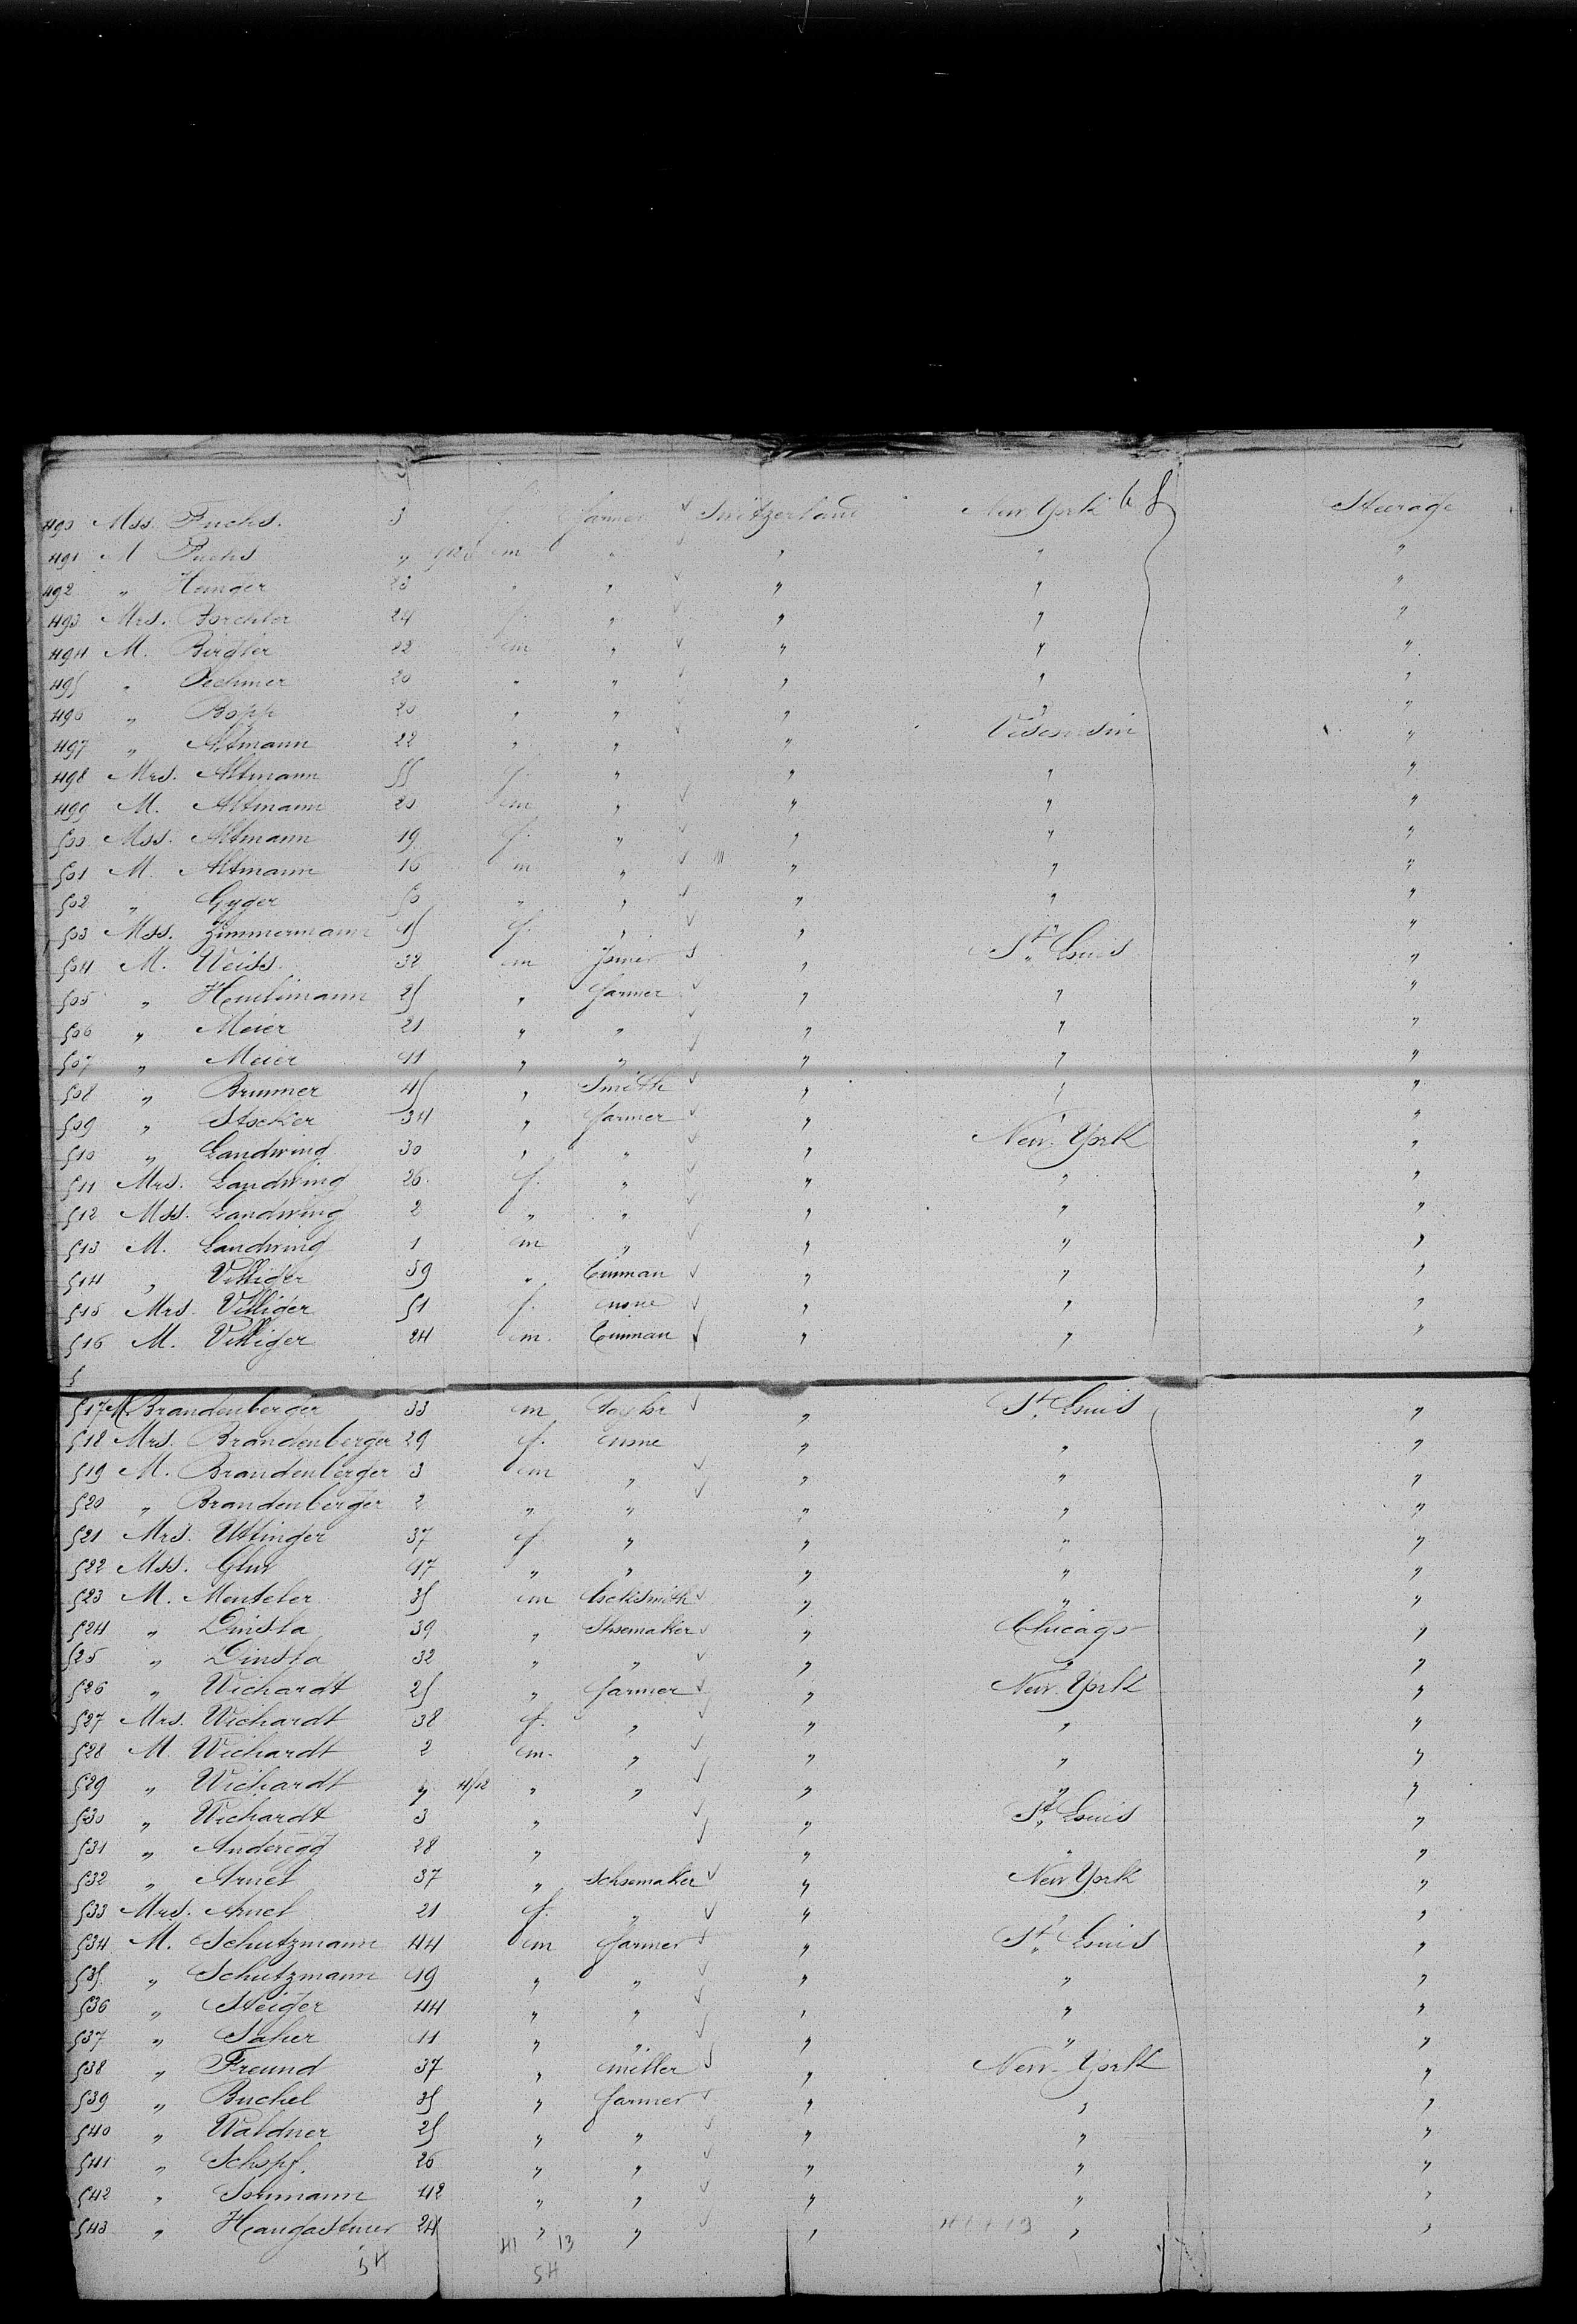 490 Mss. Fuchs. 3 f. farmer Switzerland New York Steerage
491 M Fuchs " m " " " "
492 " 23 " " " " "
493 Mrs. Forchter 24 f. " " " "
494 M. Birgler 22 m " " " "
495 " 20 " " " " "
496 " Bopp 20 " " " " "
497 " Altmann 22 " " " Visconsin "
498 Mrs. Altmann 55 f. " " " "
499 M. Altmann 20 m " " " "
500 Mss. Altmann 19 f. " " " "
501 M. Altmann 16 m " " " "
502 " Gyger 50 " " " " "
503 Mss. Zimmermann 15 f. " " " "
504 M. Weiss 32 m Joiner " St. Louis "
505 " Heulimann 25 " farmer " " "
506 " Meier 21 " " " " "
507 " Meier 11 " " " " "
508 " Brunner 45 " Smith " " "
509 " Stocker 34 " farmer " " "
510 " Landwing 30 " " " New-York "
511 Mrs. Landwing 26 f. " " " "
512 Mss. Landwing 2 " " " " "
513 M. Landwing 1 m " " " "
514 " Villiger 59 " Tinman " " "
515 Mrs. Villiger 51 f. none " " "
516 M. Villiger 24 m. Tinman " " "
5
517 M. Brandenberger 33 m Taylor " St. Louis "
518 Mrs. Brandenberger 29 f. none " " "
519 M. Brandenberger 3 m " " " "
520 " Brandenberger 2 " " " " "
521 Mrs. Uttinger 37 f. " " " "
522 Mss. Glur 17 " " " " "
523 M. Menteler 35 m locksmith " " "
524 " Dinsta 39 " Shoemaker " Chicago "
525 " Dinsta 32 " " " " "
526 " Wichardt 25 " farmer " New-York "
527 Mrs. Wichardt 38 f. " " " "
528 M. Wichardt 2 m. " " " "
529 " Wichardt " 4/12 " " " " "
530 " Wichardt 3 " " St. Louis "
531 " Anderegg 28 " " " "
532 " Arnet 37 " Schoemaker " New York "
533 Mrs. Arnet 21 f. " " " "
534 M. Schutzmann 44 m farmer " St. Louis "
535 " Schutzmann 19 " " " " "
536 " Steiger 44 " " " " "
537 " Saher 11 " " " " "
538 " Freund 37 " miller " New-York "
539 " Buchel 35 " farmer " " "
540 " Waldner 25 " " " " "
541 " Schopf. 26 " " " " "
542 " Sonmann 42 " " " " "
543 " 24 " " " " "
41 13
54 54